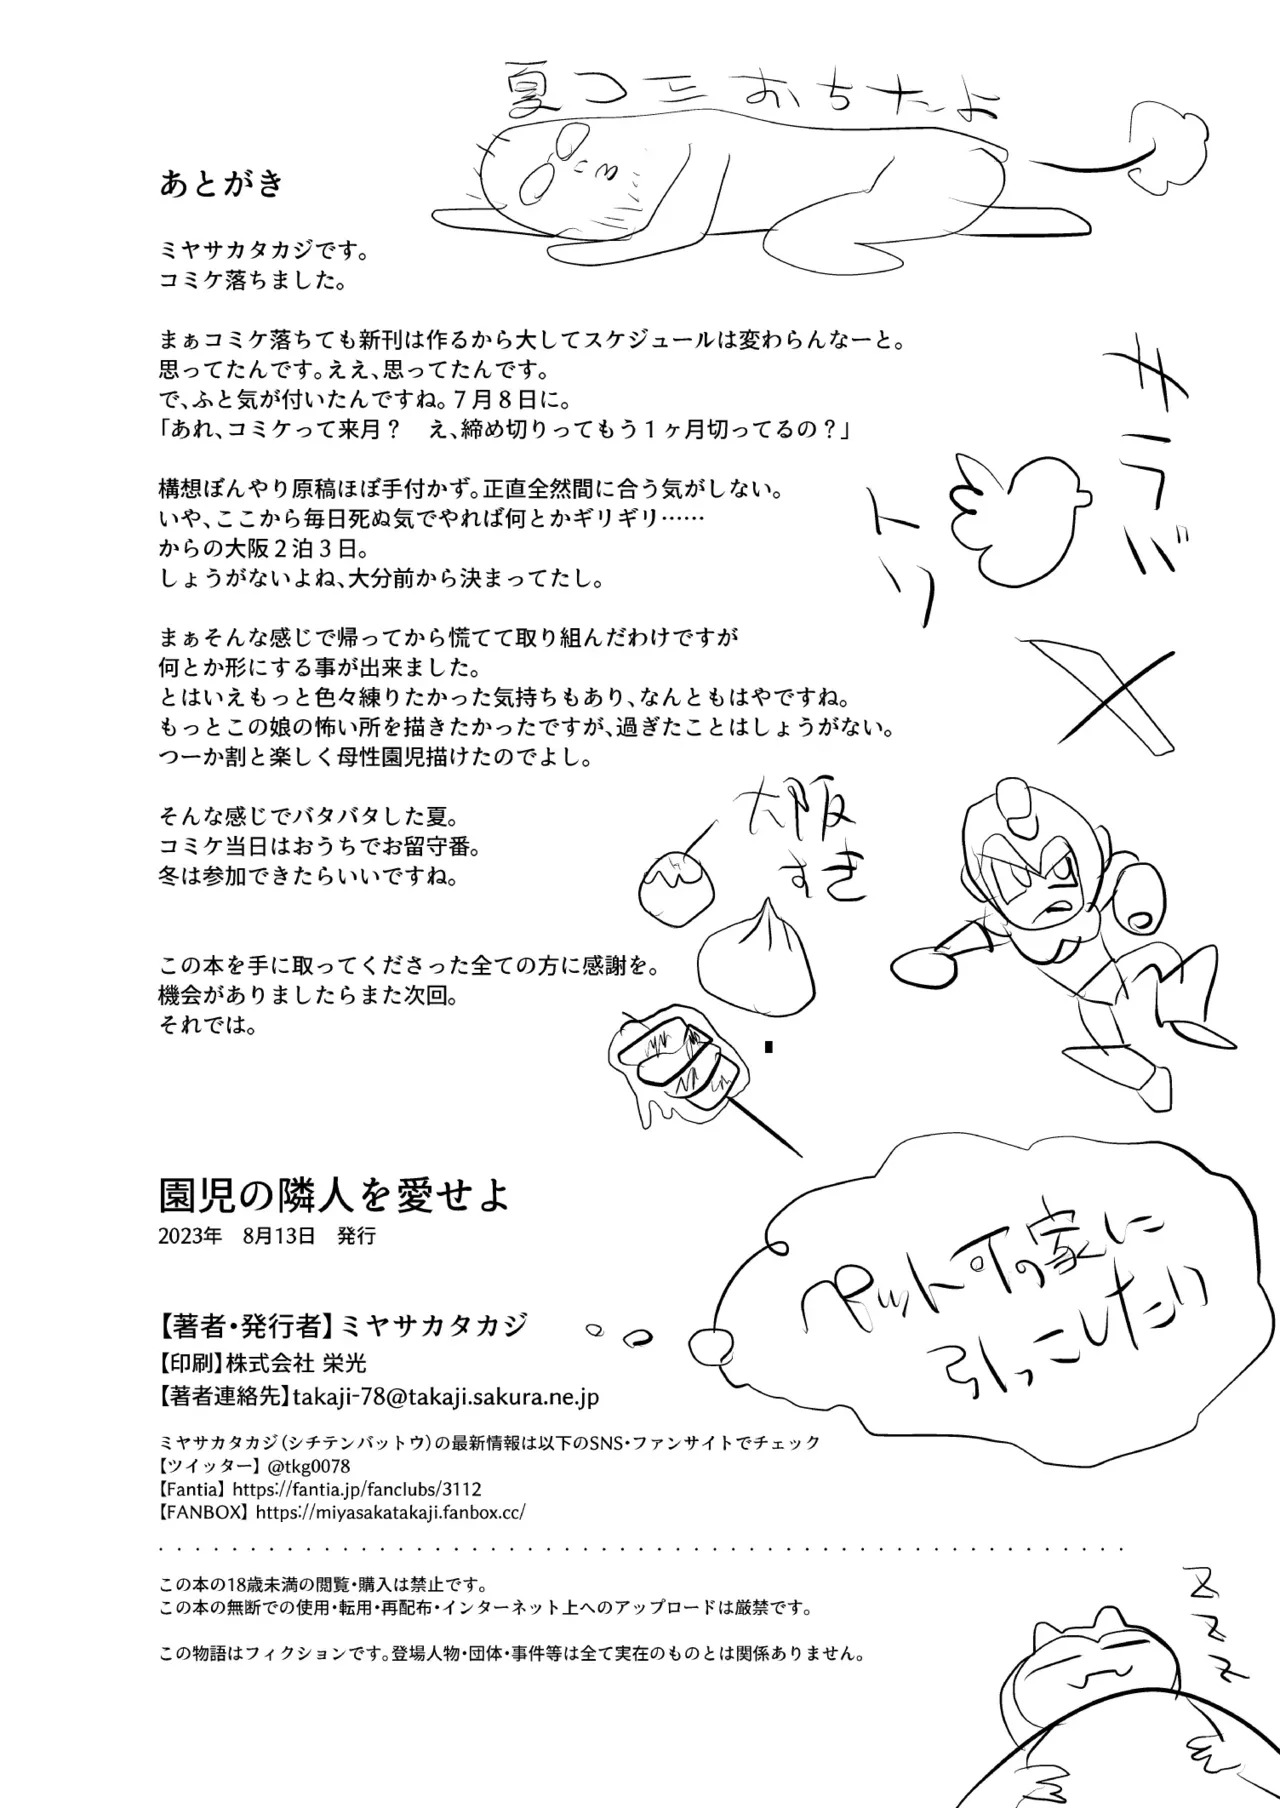 夏コミおちたよ
あとがき
ミヤサカタカジです。
コミケ落ちました。
まぁコミケ落ちても新刊は作るから大してスケジュールは変わらんなーと。
思ってたんです。ええ、思ってたんです。
で、ふと気が付いたんですね。７月８日に。
「あれ、コミケって来月？　え、締め切りってもう１ヶ月切ってるの？」
構想ぼんやり原稿ほぼ手付かず。正直全然間に合う気がしない。
いや、ここから毎日死ぬ気でやれば何とかギリギリ……
からの大阪２泊３日。
しょうがないよね、大分前から決まってたし。
まぁそんな感じで帰ってから慌てて取り組んだわけですが
何とか形にする事が出来ました。
とはいえもっと色々練りたかった気持ちもあり、なんともはやですね。
もっとこの娘の怖い所を描きたかったですが、過ぎたことはしょうがない。
つーか割と楽しく母性園児描けたのでよし。
そんな感じでバタバタした夏。
コミケ当日はおうちでお留守番。
冬は参加できたらいいですね。
この本を手に取ってくださった全ての方に感謝を。
機会がありましたらまた次回。
それでは。
サラバ
トリ
X
大阪
すき
ペット可の家に
引っこしたい
園児の隣人を愛せよ
2023年　8月13日　発行
【著者・発行者】ミヤサカタカジ
【印刷】株式会社 栄光
【著者連絡先】takaji-78@takaji.sakura.ne.jp
ミヤサカタカジ（シチテンバットウ）の最新情報は以下のSNS・ファンサイトでチェック
【ツイッター】@tkg0078
【Fantia】https://fantia.jp/fanclubs/3112
【FANBOX】https://miyasakatakaji.fanbox.cc/
この本の18歳未満の閲覧・購入は禁止です。
この本の無断での使用・転用・再配布・インターネット上へのアップロードは厳禁です。
この物語はフィクションです。登場人物・団体・事件等は全て実在のものとは関係ありません。
ZZZZ